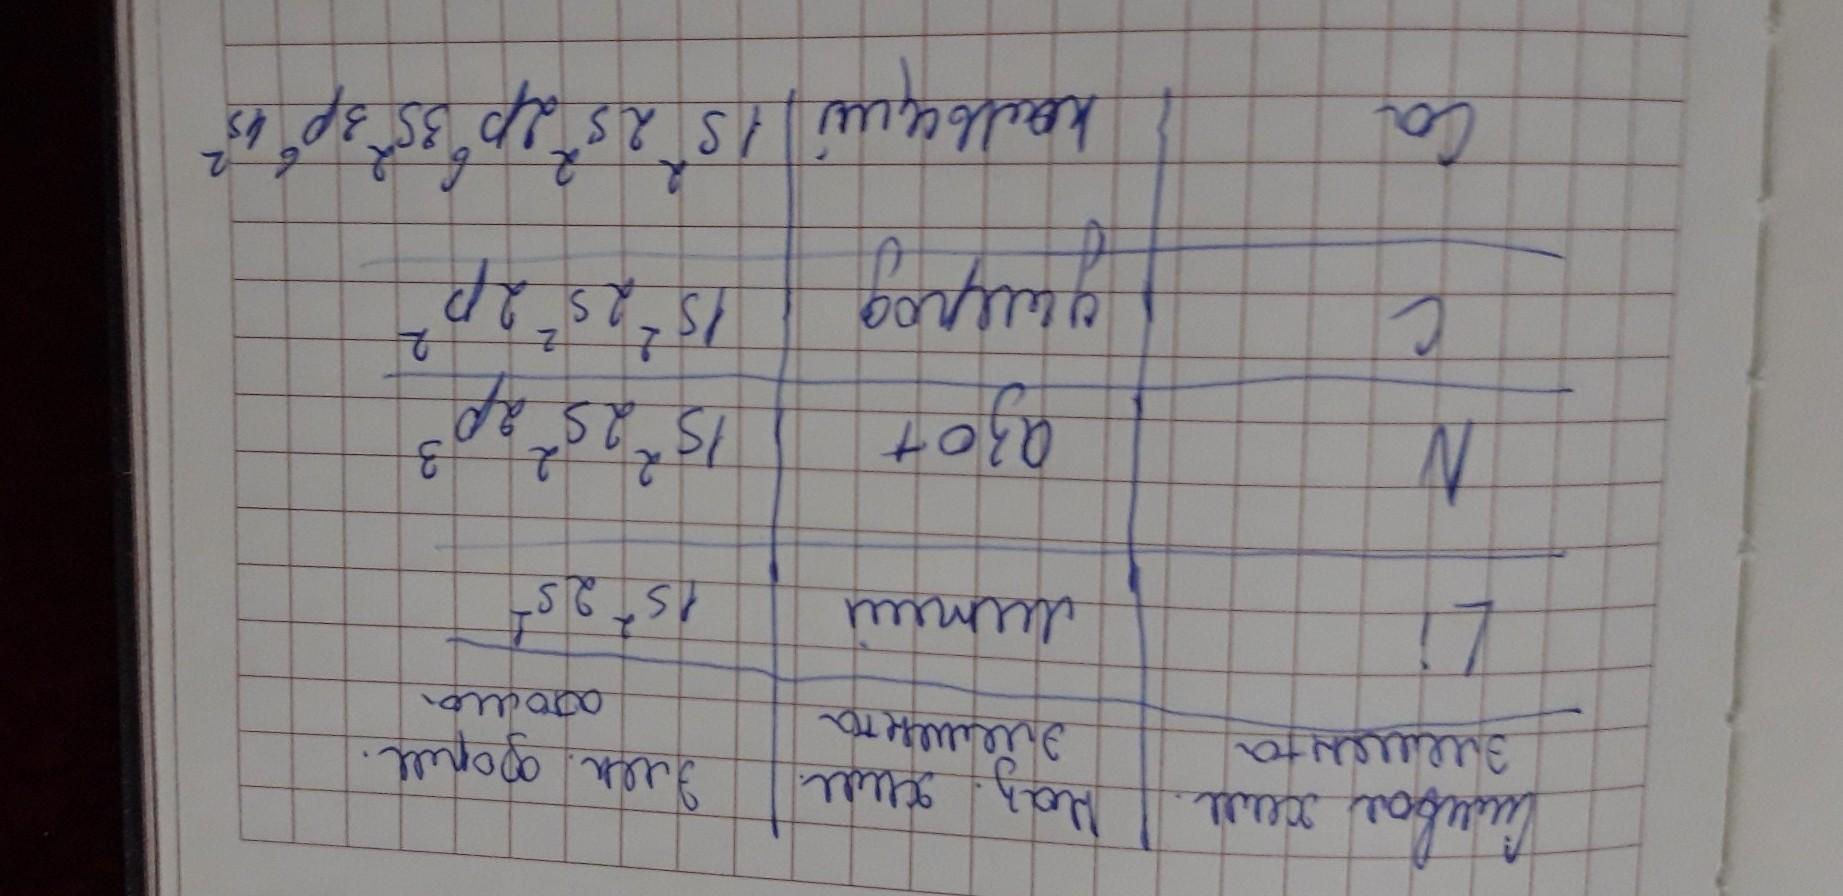 Символ хим. Наз. хим. Элек. форм.
элемента элемента атома
Li литий 1s² 2s¹
N азот 1s² 2s² 2p³
C углерод 1s² 2s² 2p²
Ca кальций 1s² 2s² 2p⁶ 3s² 3p⁶ 4s²